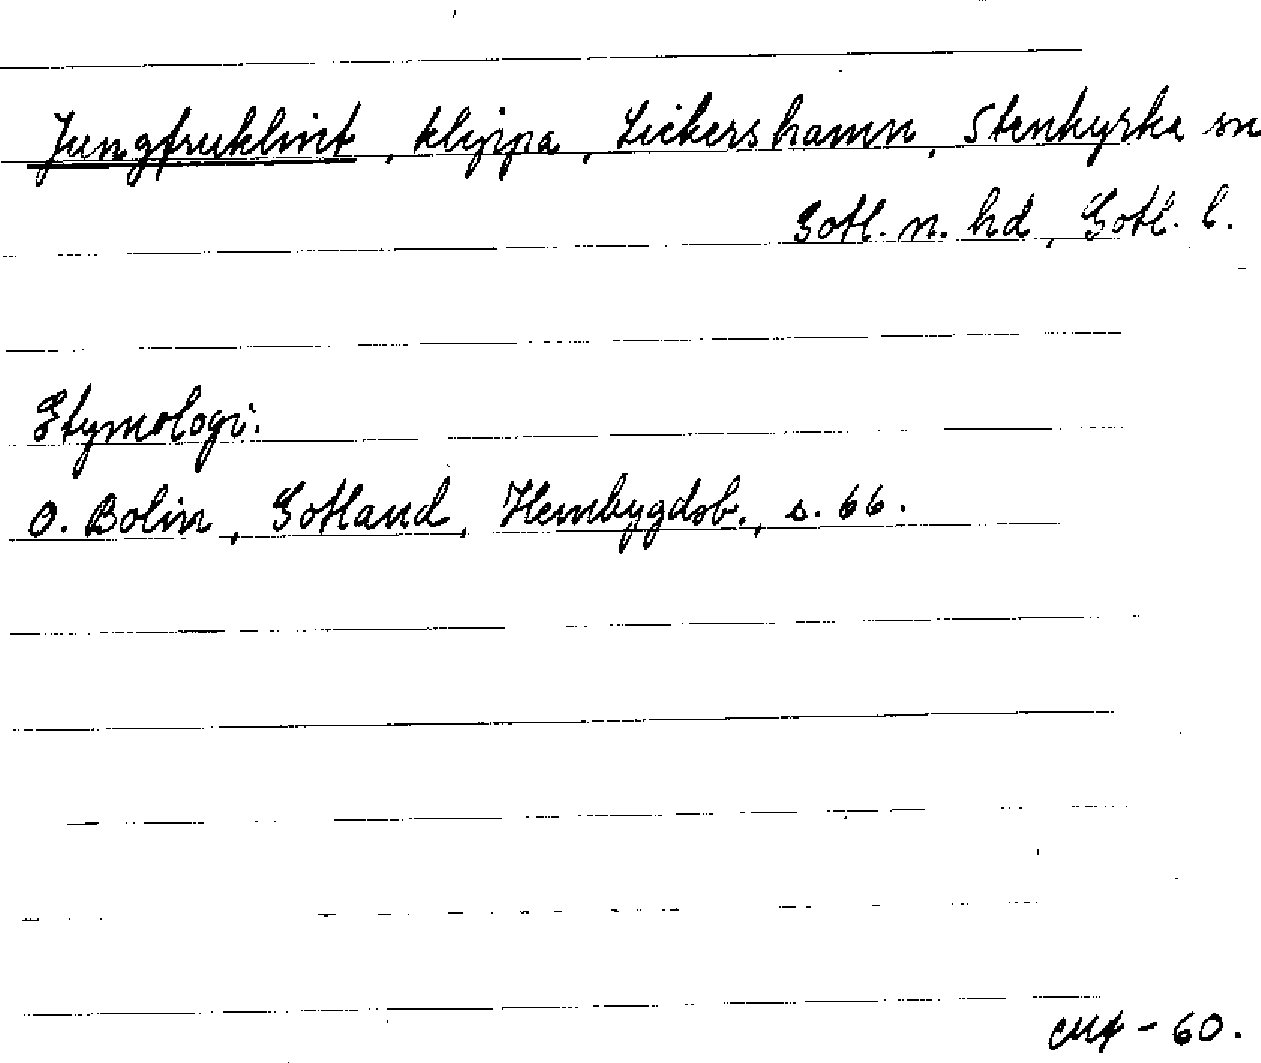 Jungfruklint, klippa, Lickershamn, Stenkyrka sn
Gotl. n. hd, Gotl. l.
Etymologi.
O. Bolin, Gotland, Hembygdsb., s. 66.
- 60.